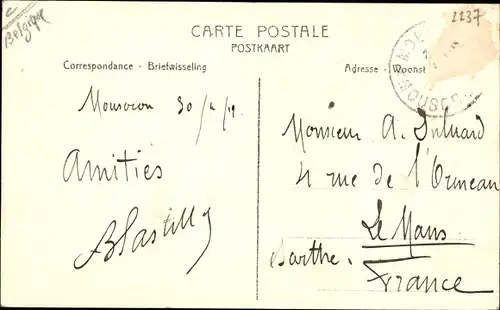 Belgique
2237
CARTE POSTALE
POSTKAART
Correspondance - Briefwisseling
Adresse - Woonst
MOUSCR
Mouscron 30
Amitiés
Monsieur A.
4 rue de l'Ormeau
Le Mans
Sarthe.
France